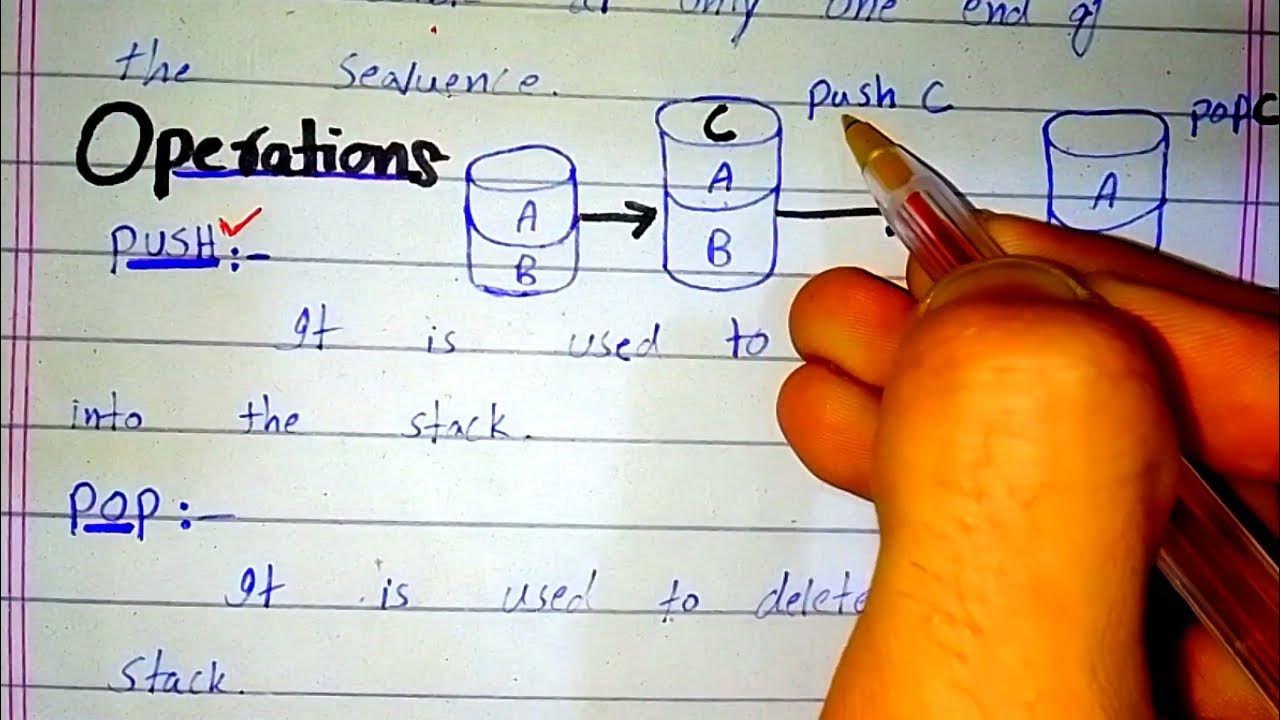 at only one end of
the seauence.
push C
popC
Operations
C
A
A
A
B
B
PUSH:-
It is used to
into the stack.
POP:-
It is used to delete
stack.